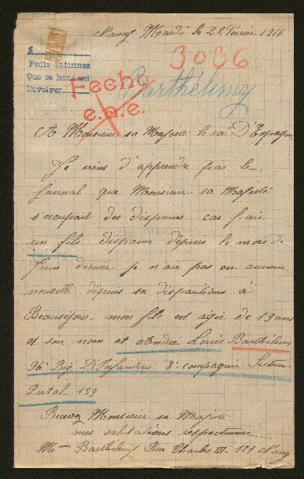 Nancy Mardi le 22 Fevrier 1916
3036
Pedir informes
Que se hace así
Devolver
Fecho
Barthélemy
e.a.e.
A Monsieur sa Majesté le roi D'Espagne
Je viens d'apprendre par le
Journal que Monsieur sa Majesté
s'occupait des disparus car j'ai
un fils disparu depuis le mois de
Juin dernier je n'ai pas eu aucune
nouvelle depuis sa disparitions à
Beauséjour mon fils est agée de 19 ans
et son nom et
Louis Barthélemy
Reg D'Infanterie 8e compagnie
Postal 139
Recevez Monsieur sa Majesté
mes salutations respectueuse
Mme Barthelemy Rue Charles III 121 Nancy